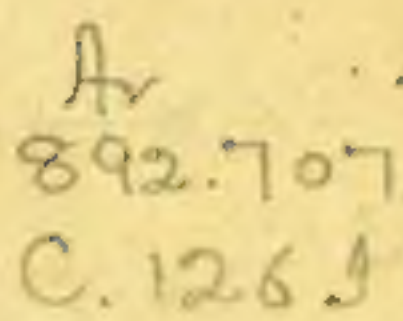 Ar
892.707
C.126J